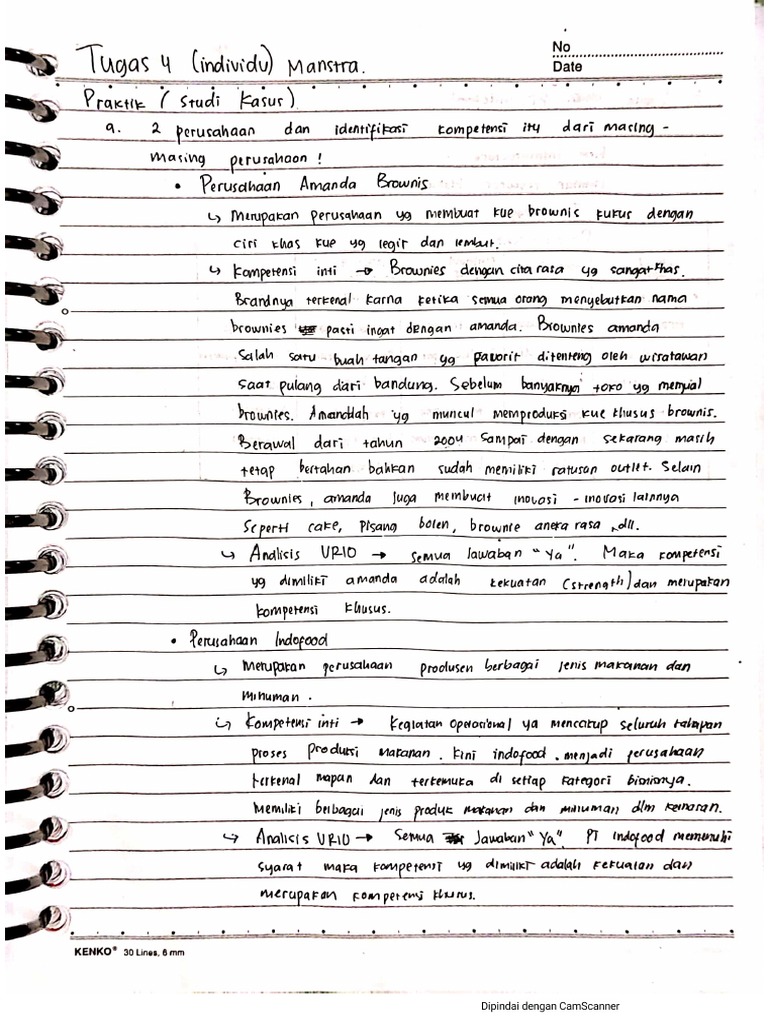 No
Date
Tugas 4 (individu) Manstra.
Praktik (Studi Kasus)
a. 2 perusahaan dan identifikasi kompetensi itu dari masing -
masing perusahaan !
• Perusahaan Amanda Brownis
↳ Merupakan perusahaan yg membuat kue brownis kukus dengan
ciri khas kue yg legit dan lembut.
↳ Kompetensi inti → Brownies dengan cita rasa yg sangat khas.
Brandnya terkenal karna ketika semua orang menyebutkan nama
brownies pasti ingat dengan amanda. Brownies amanda
Salah satu buah tangan yg favorit ditenteng oleh wisatawan
saat pulang dari bandung. Sebelum banyaknya toko yg menjual
brownies. Amandalah yg muncul memproduksi kue khusus brownis.
Berawal dari tahun 2004 sampai dengan sekarang masih
tetap bertahan bahkan sudah memiliki ratusan outlet. Selain
Brownies, amanda juga membuat inovasi - inovasi lainnya
Seperti cake, pisang bolen, brownie aneka rasa, dll.
↳ Analisis VRIO → semua Jawaban "Ya". Maka kompetensi
yg dimiliki amanda adalah kekuatan (strength) dan merupakan
kompetensi khusus.
• Perusahaan Indofood
↳ Merupakan perusahaan produsen berbagai jenis makanan dan
minuman.
↳ Kompetensi inti → Kegiatan Operasional ya mencakup seluruh tahapan
proses produksi makanan. Kini indofood menjadi perusahaan
terkenal mapan dan terkemuka di setiap kategori bisnisnya.
Memiliki berbagai jenis produk makanan dan minuman dlm kemasan.
↳ Analisis VRIO → Semua Jawaban "Ya". PT Indofood memenuhi
syarat maka kompetensi yg dimiliki adalah kekuatan dan
merupakan kompetensi khusus.
KENKO® 30 Lines, 6 mm
Dipindai dengan CamScanner